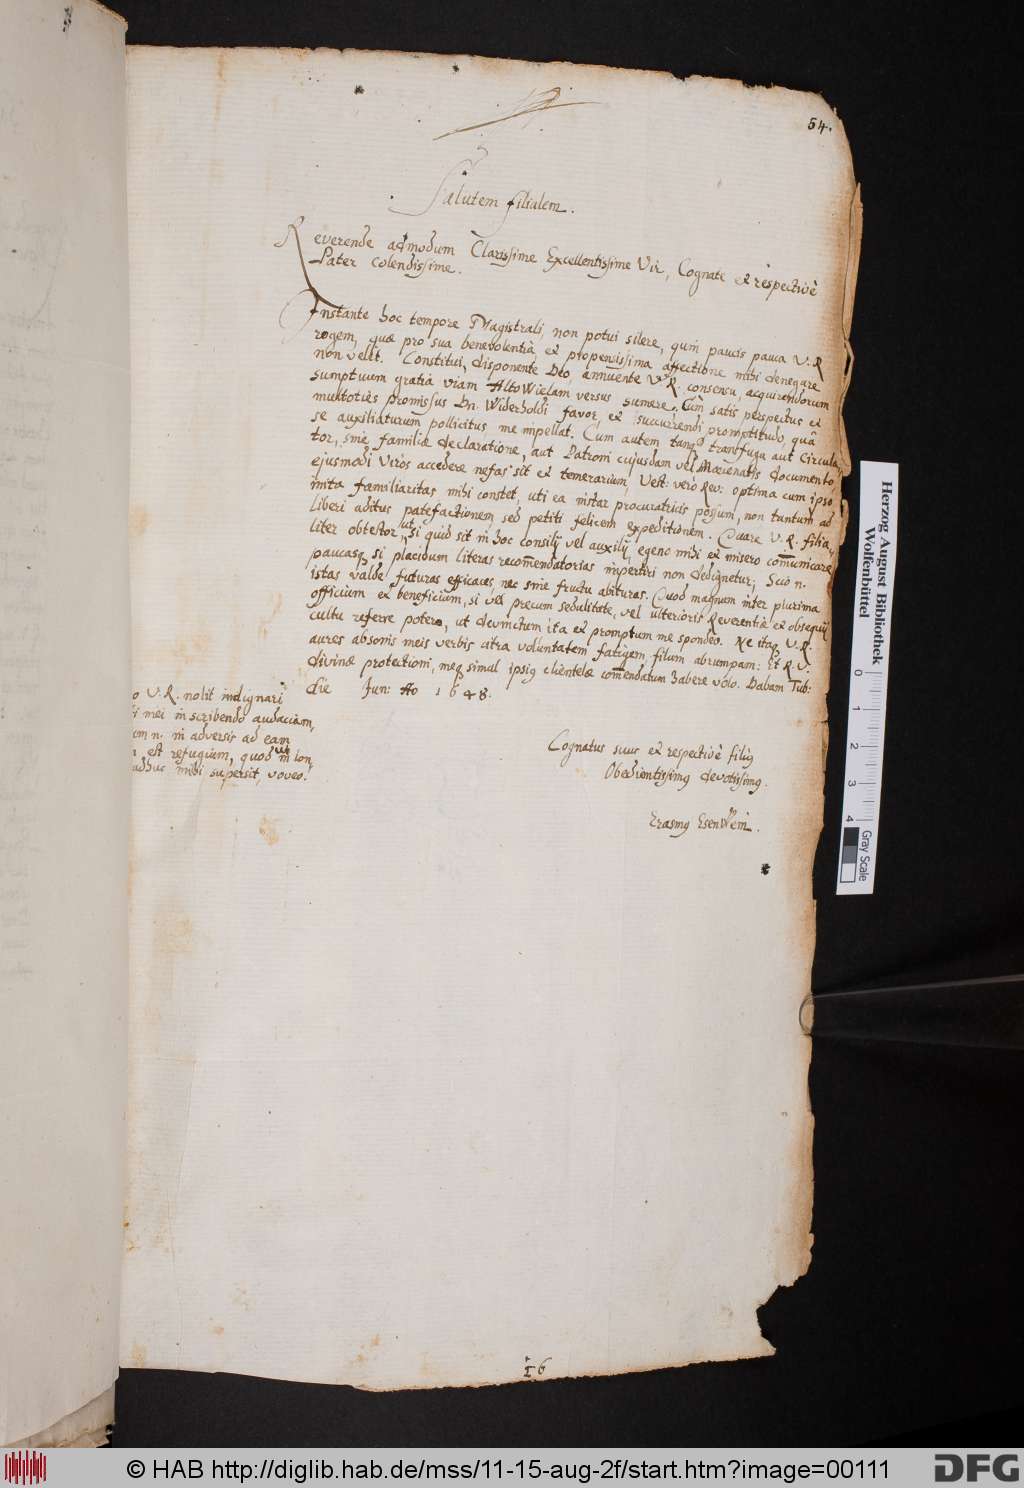 54.
Salutem filialem.
Reverende admodum Clarissime Excellentissime Vir, Cognate et respectivè
Pater colendissime.
Instante hoc tempore Magistrali, non potui silere, quin paucis pauca V. R
rogem, quæ pro sua benevolentia et propensissima affectione mihi denegare
non velit. Constitui, disponente Deo, annuente V. R. consensu, acquirendorum
sumptuum gratiâ viam AltoWielam versus sumere. Cùm satis perspectus et
multoties promissus Dn. Widerholdi favor, et succurrendi promptitudo, quâ
se auxiliaturum pollicitus me impellat. Cum autem tanq transfuga aut Circula-
tor, sine familiæ declaratione, aut Patroni cujusdam vel Mœcenatis documento
ejusmodi Viros accedere nefas sit et temerarium, Vest: verò Rev: optima cum ipso
inita familiaritas mihi constet, uti ea instar procuratricis possum, non tantum ad
liberi aditus patefactionem sed petiti felicem expeditionem. Quare V. R. filia-
liter obtestor, ut si quid sit in hoc consilij vel auxilij egeno mihi et misero communicare
paucasq, si placidum literas recommendatorias impertiri non dedignetur; Scio n.
istas valde futuras efficaces, nec sine fructu abituras. Quod magnum inter plurima
officium et beneficium, si vel precum sedulitate, vel ulterioris Reverentiæ et obsequij
cultu referre potero, ut devinctum ita et promptum me spondeo. Ne itaq V. R.
aures absonis meis verbis citra voluntatem fatigem, filum abrumpam: Et R. V.
divinæ protectioni, meq simul ipsiq clientelæ commendatum habere volo. Dabam Tub:
die Jun: Ao 1648.
o V. R. nolit indignari
i mei in scribendo audaciam,
um n. in adversis ad eam
n est refugium, quod ut in lon,
adhuc mihi supersit, voveo.
Cognatus suus et respectivè filiq
Obedientissimq devotissimq.
Erasmq EsenWein.
16
Herzog August Bibliothek
Wolfenbüttel
0 1 2 3 4
Gray Scale
© HAB http://diglib.hab.de/mss/11-15-aug-2f/start.htm?image=00111
DFG